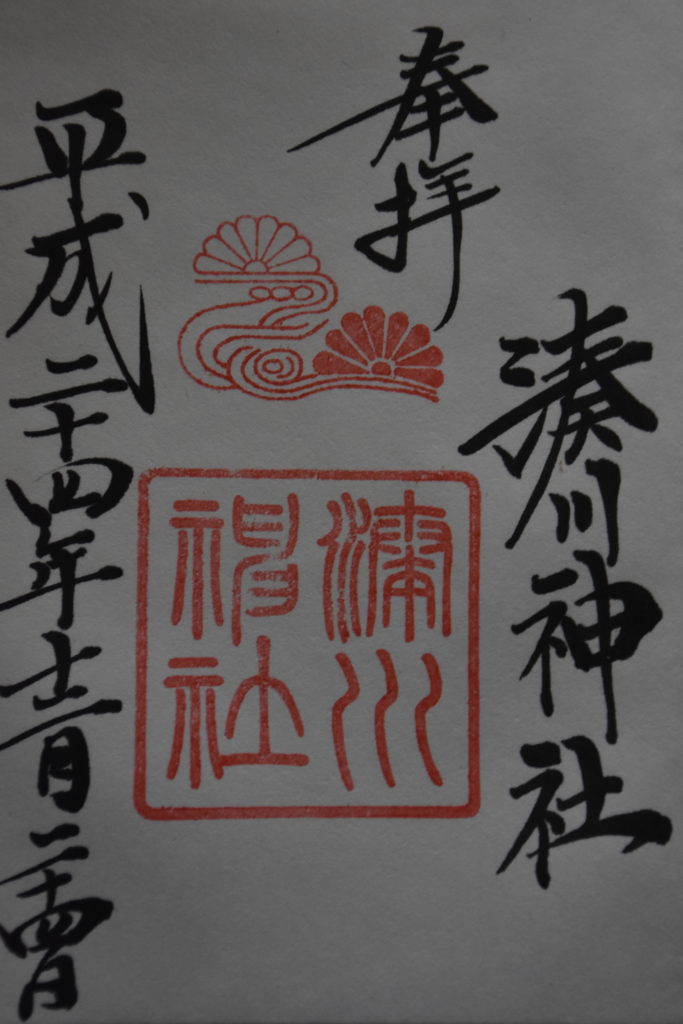 奉拝
湊川神社
湊川
神社
平成二十四年十一月二十四日